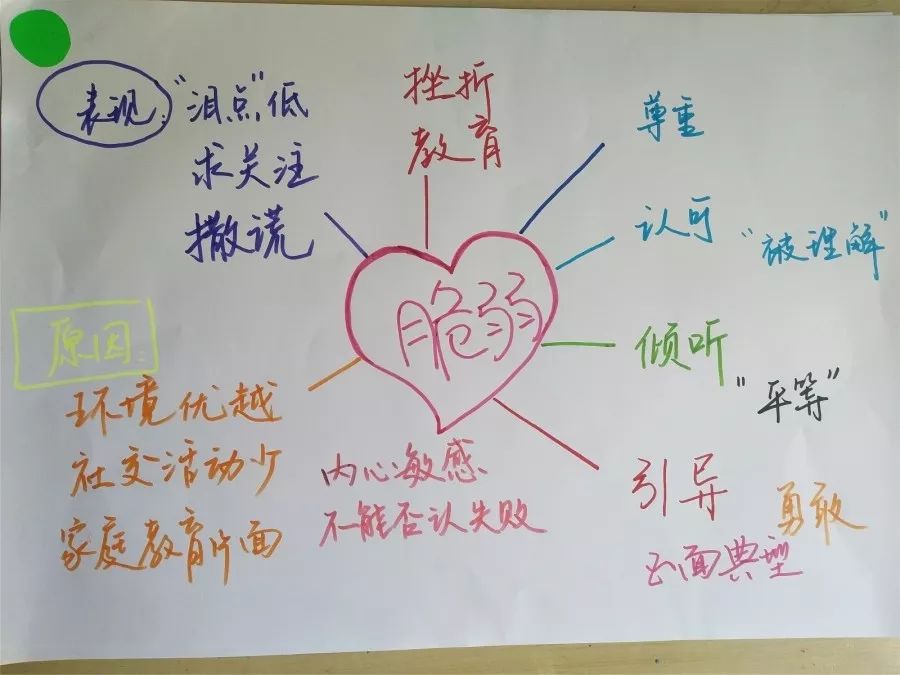 表现: "泪点"低
求关注
撒谎
挫折
教育
尊重
认可 "被理解"
脆弱
倾听
"平等"
原因:
环境优越
社交活动少
家庭教育片面
内心敏感
不能否认失败
引导
勇敢
正面典型